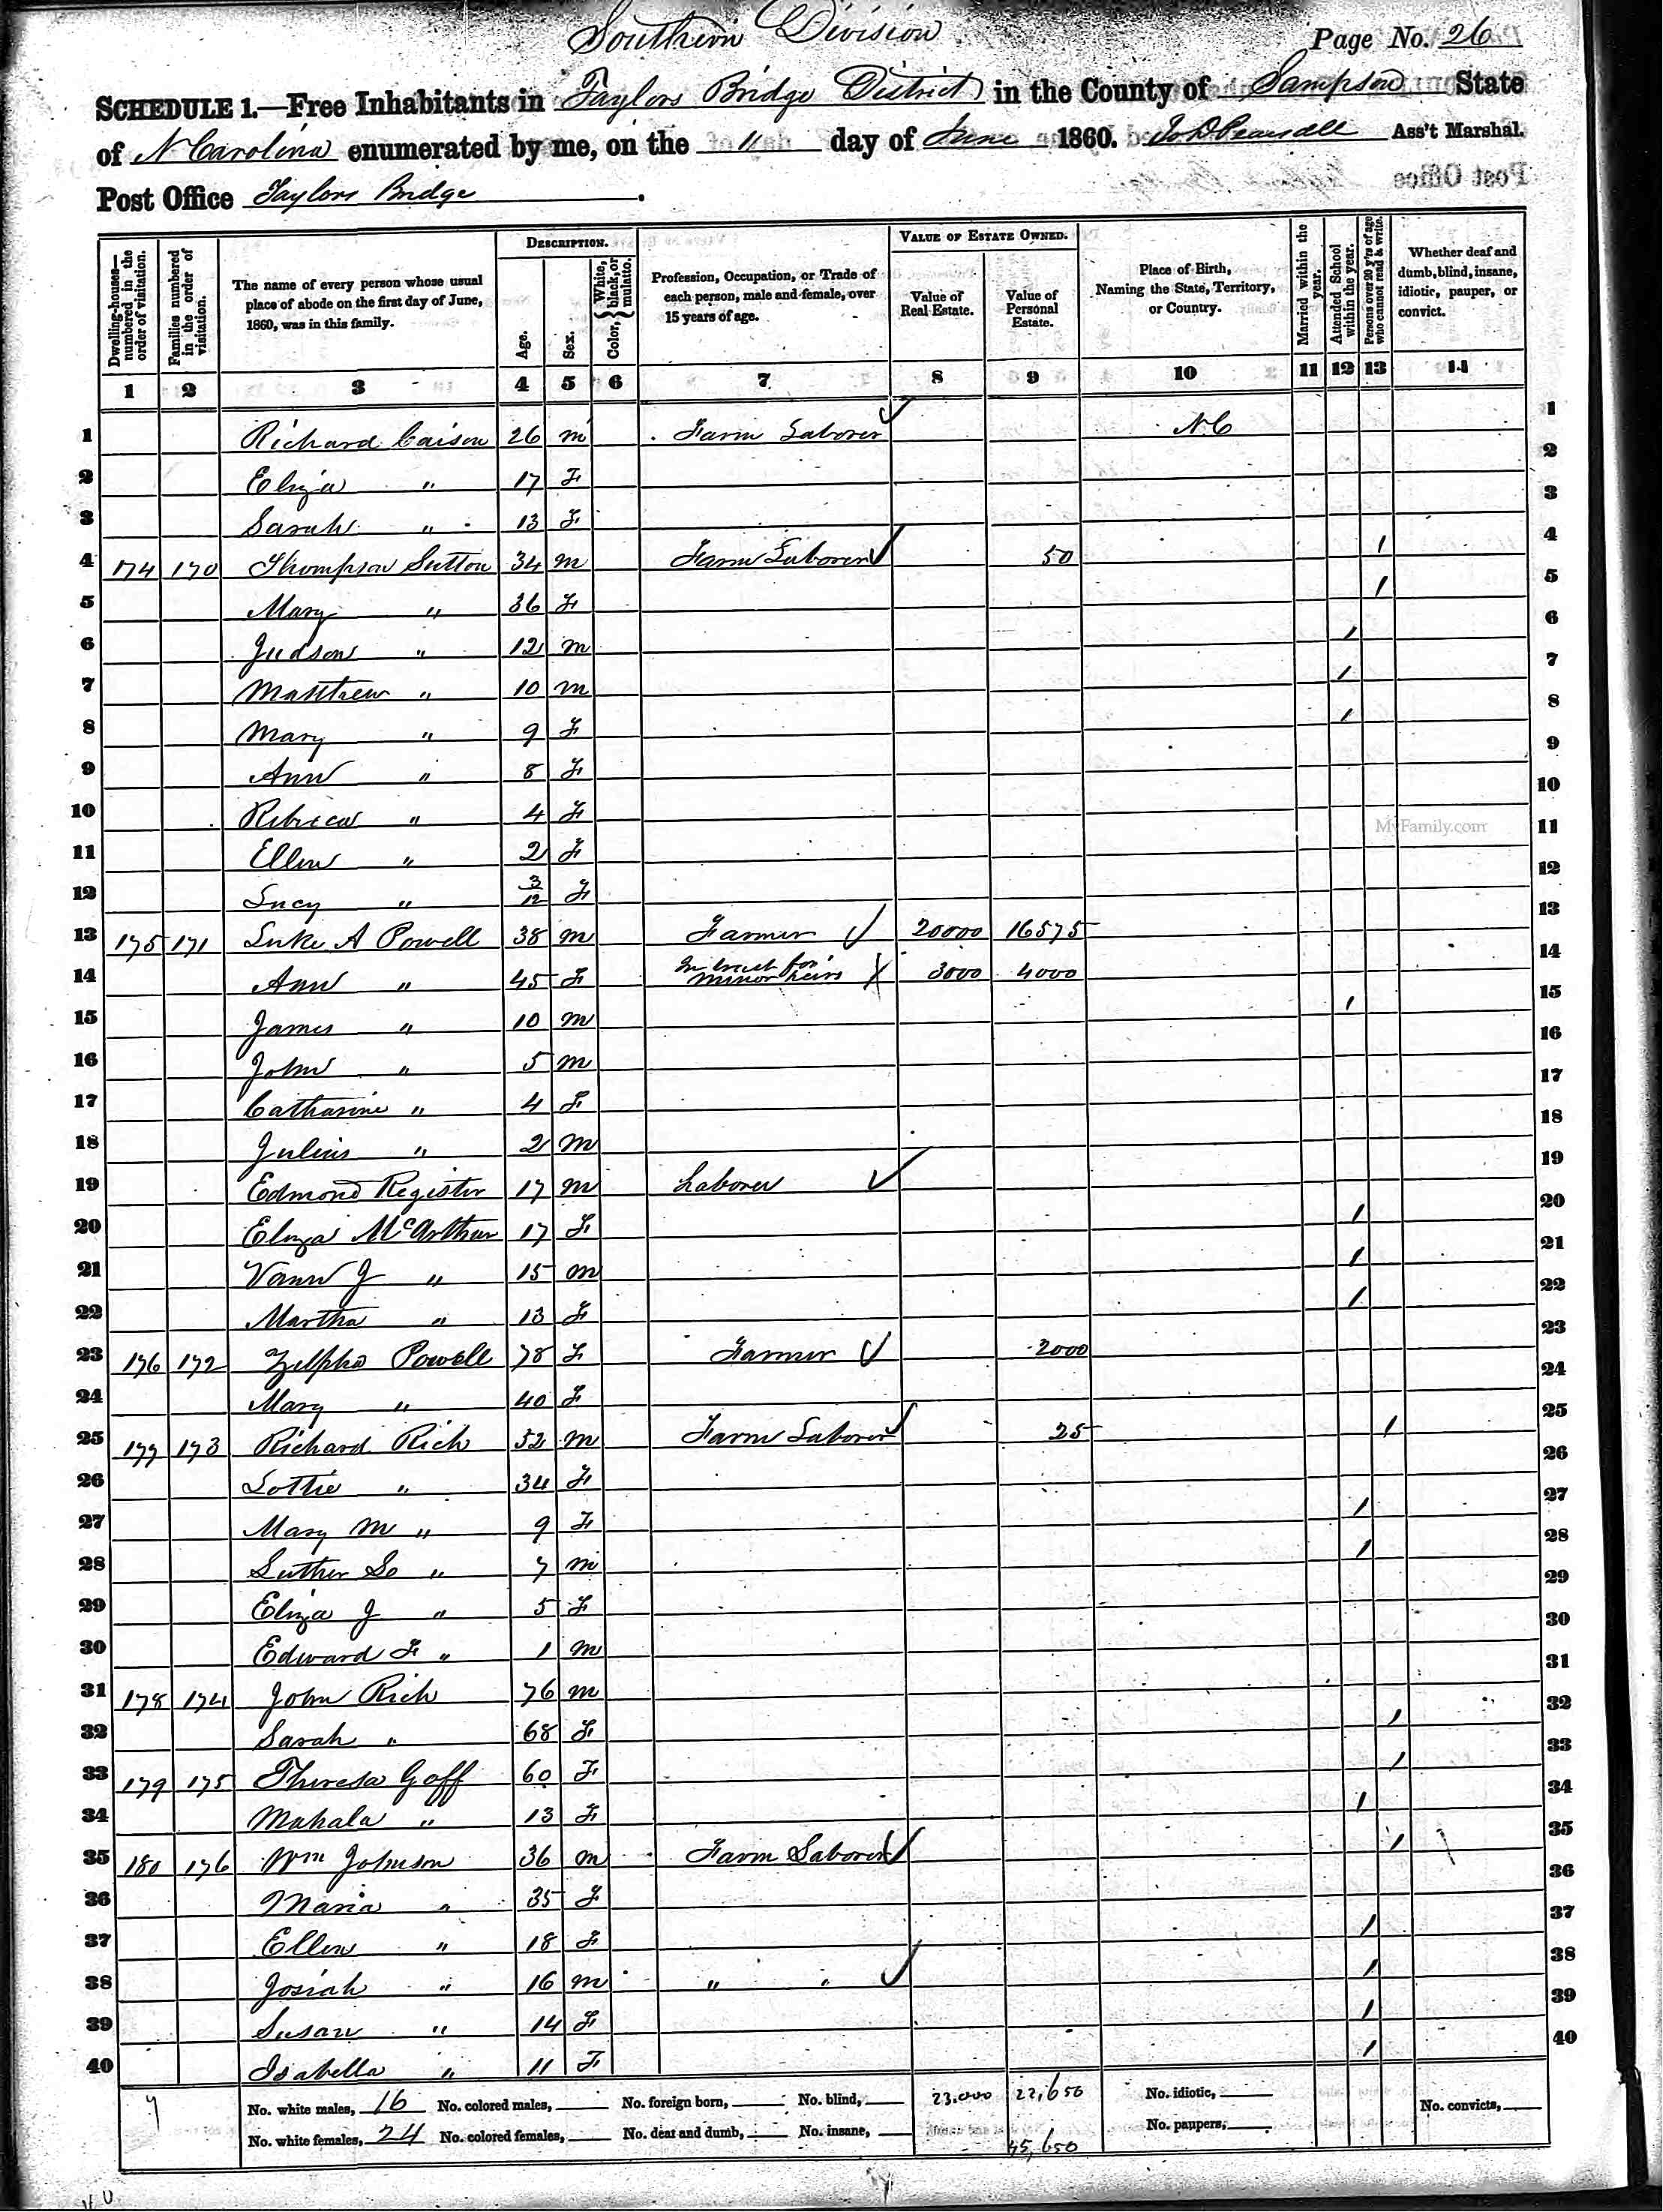 Southern Division
Page No. 26
SCHEDULE 1.—Free Inhabitants in Taylors Bridge District in the County of Sampson State
of N Carolina enumerated by me, on the 11 day of June 1860. Ass't Marshal.
Post Office Taylors Bridge.
Dwelling-houses—numbered in the order of visitation.
Families numbered in the order of visitation.
The name of every person whose usual place of abode on the first day of June, 1860, was in this family.
DESCRIPTION.
Age.
Sex.
Color, { White, black, or mulatto.
Profession, Occupation, or Trade of each person, male and female, over 15 years of age.
VALUE OF ESTATE OWNED.
Value of Real Estate.
Value of Personal Estate.
Place of Birth, Naming the State, Territory, or Country.
Married within the year.
Attended School within the year.
Persons over 20 y'rs of age who cannot read & write.
Whether deaf and dumb, blind, insane, idiotic, pauper, or convict.
1 2 3 4 5 6 7 8 9 10 11 12 13 14
1 Richard Caison 26 m Farm Laborer ✓ N C 1
2 Eliza " 17 F 2
3 Sarah " 13 F 3
4 174 170 Thompson Sutton 34 m Farm Laborer ✓ 50 / 4
5 Mary " 36 F / 5
6 Judson " 12 m / 6
7 Matthew " 10 m / 7
8 Mary " 9 F / 8
9 Ann " 8 F 9
10 Rebecca " 4 F 10
11 Ellen " 2 F MyFamily.com 11
12 Lucy " 3/12 F 12
13 175 171 Luke A Powell 38 m Farmer ✓ 20000 16575 13
14 Ann " 45 F In trust for minor heirs X 3000 4000 14
15 James " 10 m / 15
16 John " 5 m 16
17 Catharine " 4 F 17
18 Julius " 2 m 18
19 Edmond Register 17 m Laborer ✓ 19
20 Eliza McArthur 17 F / 20
21 Vann J " 15 m / 21
22 Martha " 13 F / 22
23 176 172 Zilpha Powell 78 F Farmer ✓ 2000 23
24 Mary " 40 F 24
25 177 173 Richard Rich 52 m Farm Laborer ✓ 25 / 25
26 Lottie " 34 F 26
27 Mary M " 9 F / 27
28 Luther " 7 m / 28
29 Eliza J " 5 F 29
30 Edward F " 1 m 30
31 178 174 John Rich 76 m 31
32 Sarah " 68 F / 32
33 179 175 Theresa Goff 60 F / 33
34 Mahala " 13 F / 34
35 180 176 Wm Johnson 36 m Farm Laborer ✓ / 35
36 Maria " 35 F 36
37 Ellen " 18 F / 37
38 Josiah " 16 m " " ✓ / 38
39 Susan " 14 F / 39
40 Isabella " 11 F / 40
No. white males, 16 No. colored males, No. foreign born, No. blind, 23,000 22,650 No. idiotic, No. convicts,
No. white females, 24 No. colored females, No. deaf and dumb, No. insane, No. paupers,
45,650